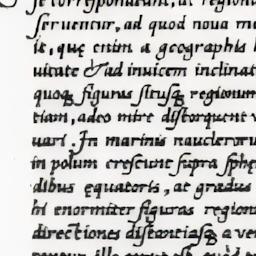 se correspondeant, ut region
seruentur, ad quod noua m
it, quę enim a geographis l
uitate & ad inuicem inclinat
quoqꝫ figuras situsqꝫ regionum
tiam, adeo mire distorquent
uari. In marinis naucleroru
in polum crescunt supra sphę
dibus ęquatoris, at gradus
hi enormiter figuras region
directiones distantiasqꝫ a ve